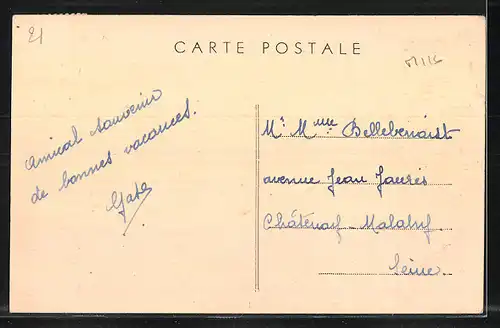 21
CARTE POSTALE
Amical souvenir
de bonnes vacances.
Mr Mme Bellebenoist
avenue Jean Jaurès
Châtenay-Malabry
Seine.